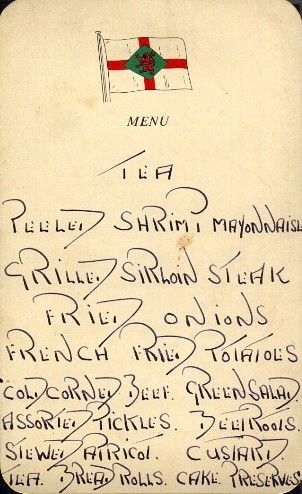 MENU
TEA
PEELED SHRIMP MAYONNAISE
GRILLED SIRLOIN STEAK
FRIED ONIONS
FRENCH FRIED POTATOES
COLD CORNED BEEF. GREEN SALAD.
ASSORTED PICKLES. BEETROOTS.
STEWED APRICOT. CUSTARD.
TEA. BREAD ROLLS. CAKE. PRESERVES